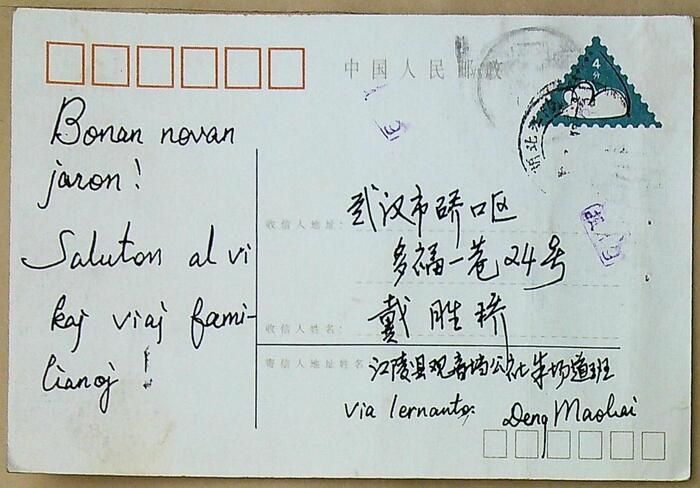 中国人民邮政
4
分
Bonan novan
jaron!
Saluton al vi
kaj viaj fami-
lianoj!
收信人地址:
武汉市硚口区
多福一巷24号
收信人姓名:
戴胜硚
寄信人地址姓名:
江陵县观音垱公社朱场道班
via lernanto: Deng Maohai